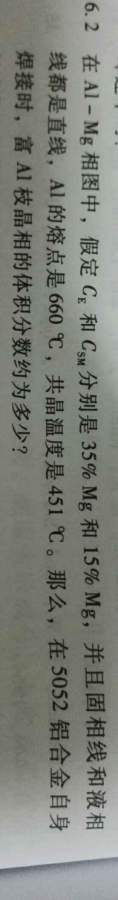 6.2 在 Al-Mg 相图中，假定 C_E 和 C_SM 分别是 35% Mg 和 15% Mg，并且固相线和液相
线都是直线，Al 的熔点是 660 ℃，共晶温度是 451 ℃。那么，在 5052 铝合金自身
焊接时，富 Al 枝晶相的体积分数约为多少？